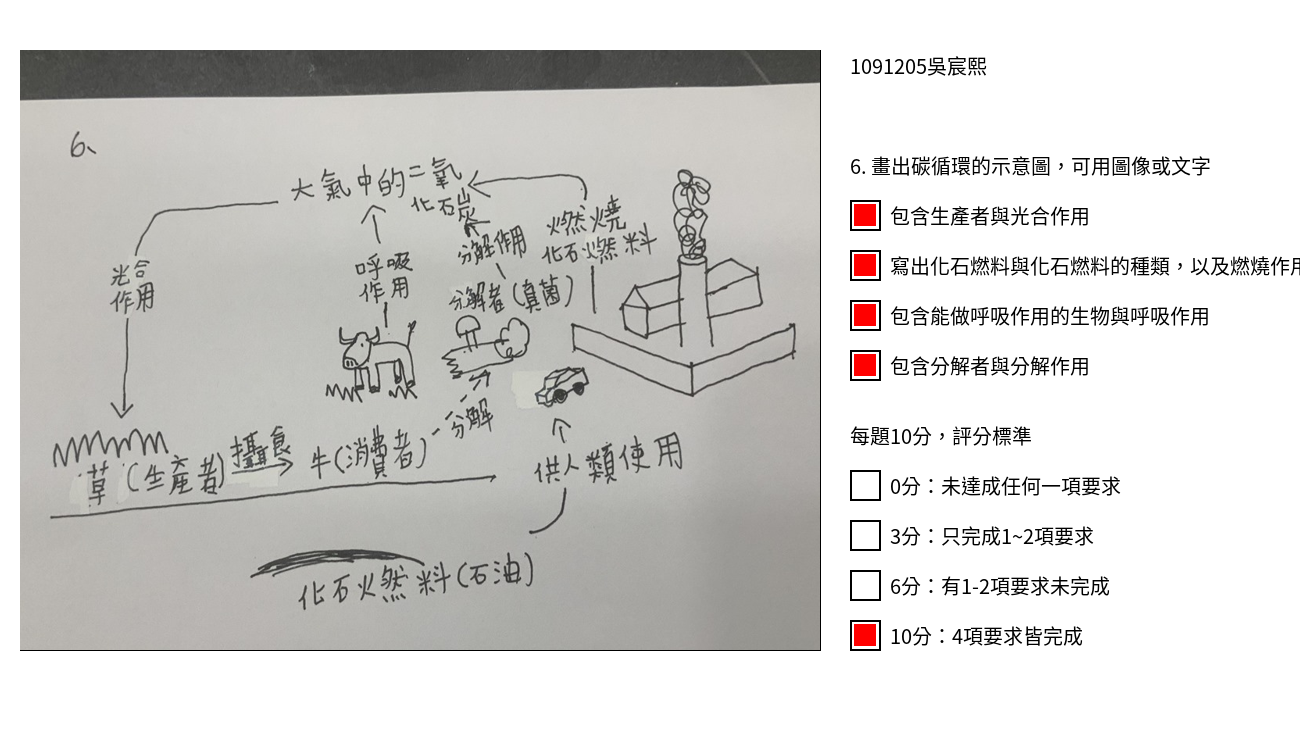 6、
大氣中的二氧
化石炭
光合
作用
呼吸
作用
分解作用
分解者(真菌)
燃燒
化石燃料
草(生產者)
攝食
牛(消費者)
分解
供人類使用
化石燃料(石油)
1091205吳宸熙
6. 畫出碳循環的示意圖，可用圖像或文字
包含生產者與光合作用
寫出化石燃料與化石燃料的種類，以及燃燒作用
包含能做呼吸作用的生物與呼吸作用
包含分解者與分解作用
每題10分，評分標準
0分：未達成任何一項要求
3分：只完成1~2項要求
6分：有1-2項要求未完成
10分：4項要求皆完成